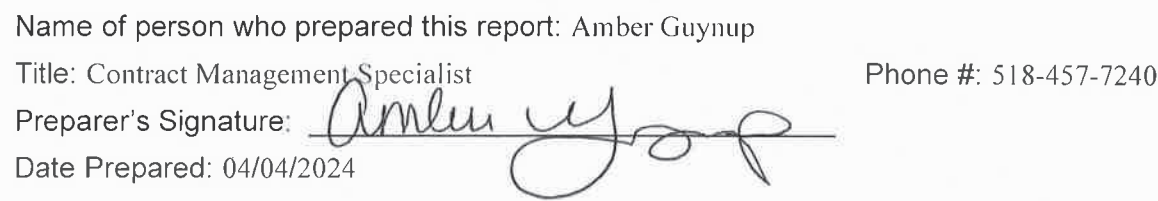 Name of person who prepared this report: Amber Guynup
Title: Contract Management Specialist Phone #: 518-457-7240
Preparer's Signature: Amber Guynup
Date Prepared: 04/04/2024